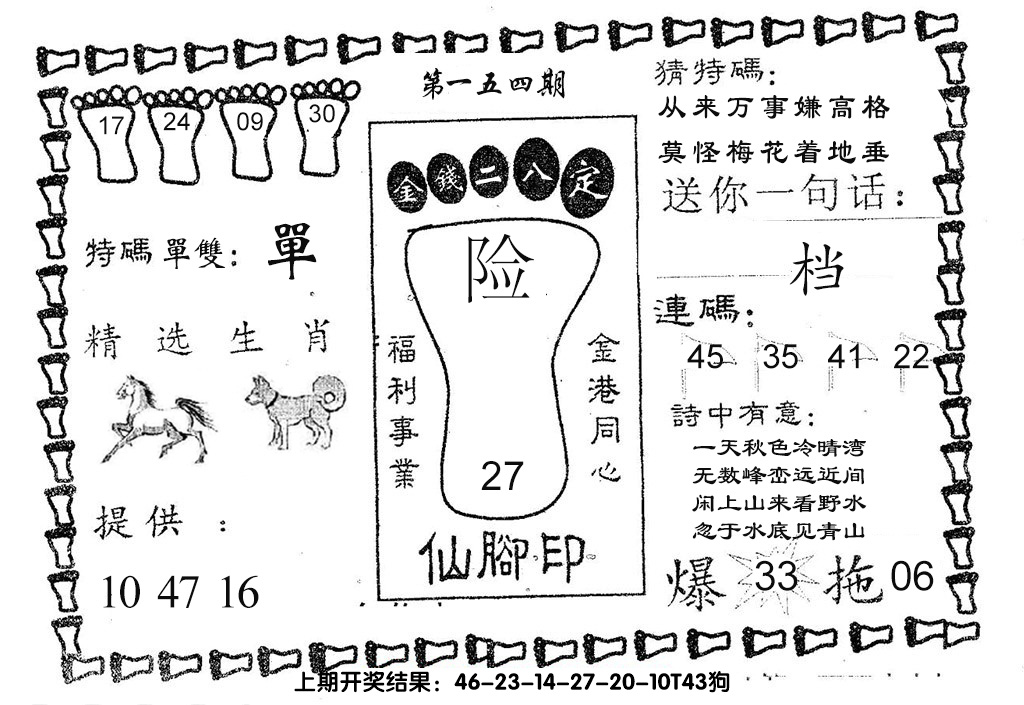 第一五四期
17 24 09 30
特碼單雙：單
精选生肖
提供：
10 47 16
金錢二八定
险
福利事業
金港同心
27
仙腳印
猜特碼：
从来万事嫌高格
莫怪梅花着地垂
送你一句话：
档
連碼：
45 35 41 22
詩中有意：
一天秋色冷晴湾
无数峰峦远近间
闲上山来看野水
忽于水底见青山
爆 33 拖 06
上期开奖结果：46-23-14-27-20-10T43狗